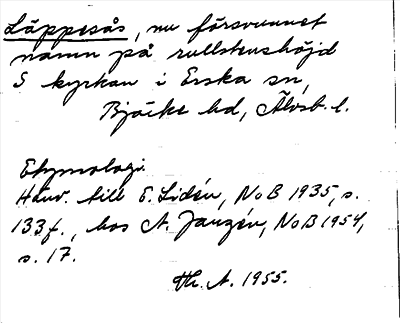 Läppesås, nu försvunnet
namn på rullstenshöjd
S kyrkan i Erska sn,
Bjärke hd, Älvsb. l.
Etymologi.
Hänv. till E. Lidén, NoB 1935, s.
133 f., hos A. Janzén, NoB 1954,
s. 17.
Th. A. 1955.